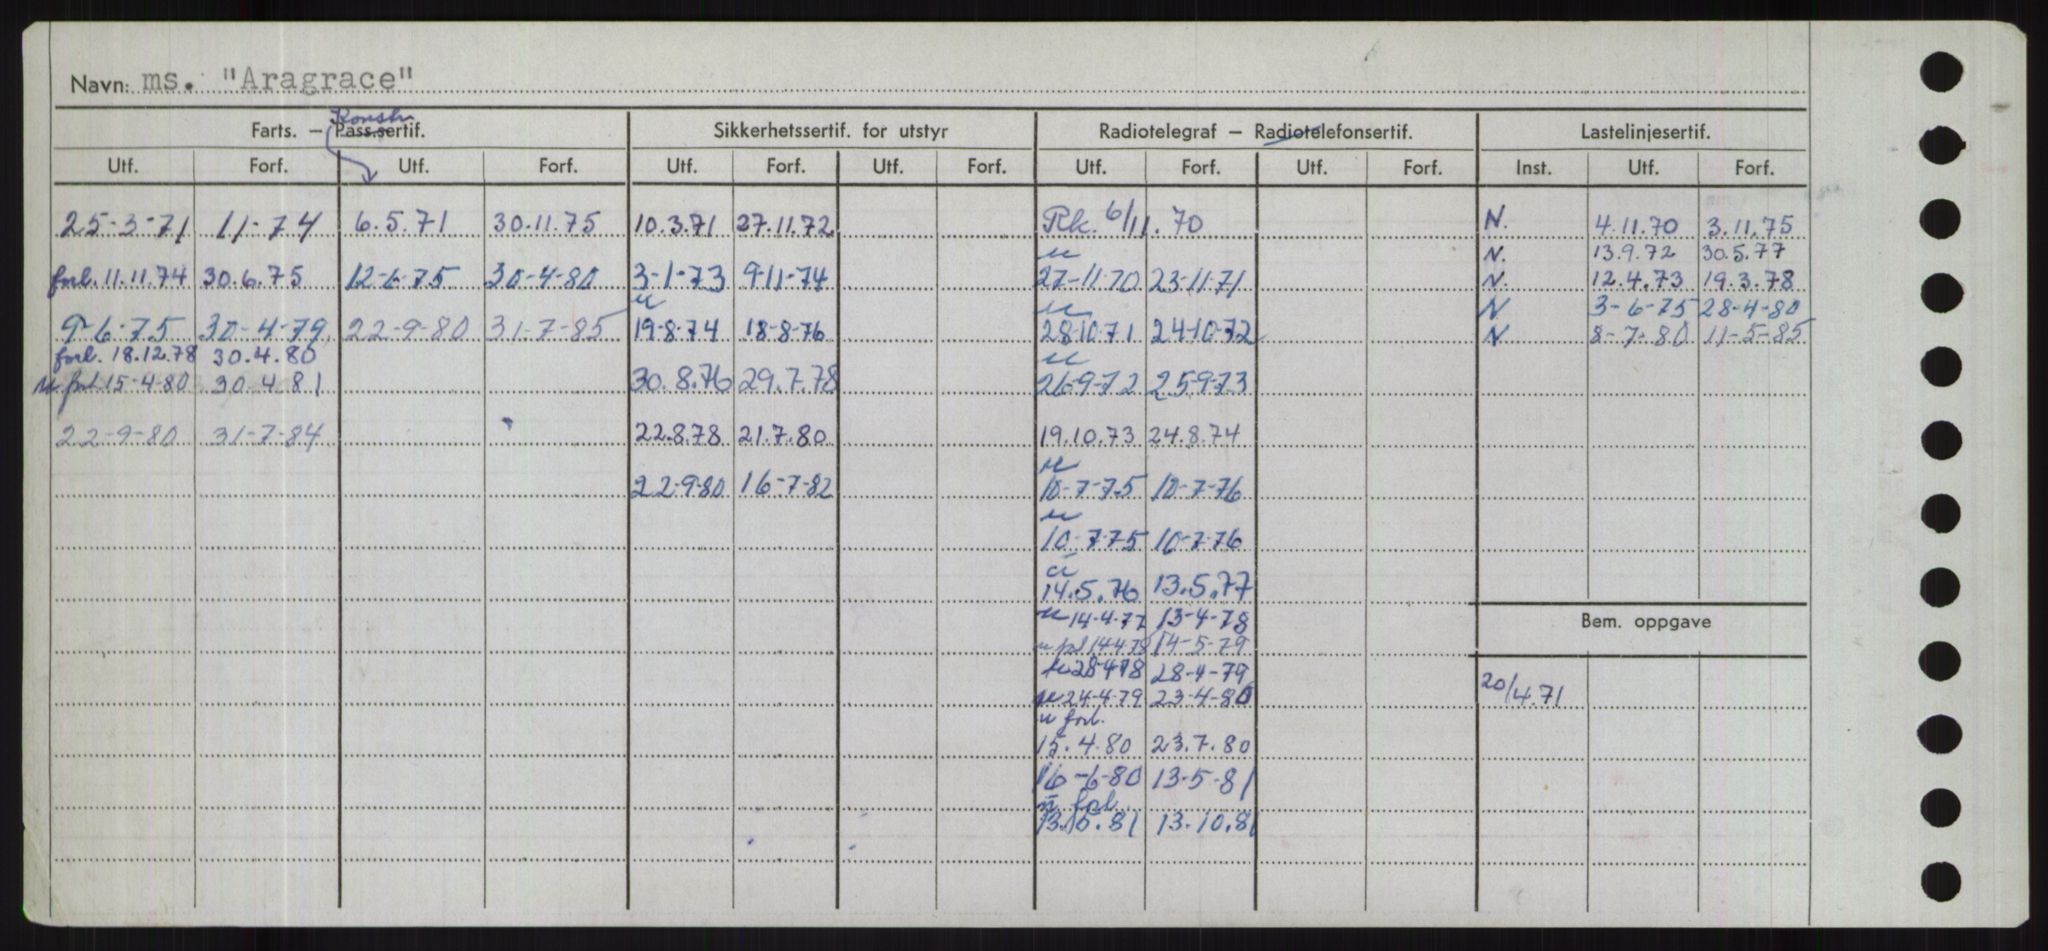 Navn: ms. "Aragrace"
Konstr.
Farts. — Pass.sertif. Sikkerhetssertif. for utstyr Radiotelegraf — Radiotelefonsertif. Lastelinjesertif.
Utf. Forf. Utf. Forf. Utf. Forf. Utf. Forf. Utf. Forf. Utf. Forf. Inst. Utf. Forf.
25-3-71 11-74 6.5.71 30.11.75 10.3.71 27.11.72 Rk. 6/11.70 N. 4.11.70 3.11.75
u N. 13.9.72 30.5.77
forl. 11.11.74 30.6.75 12-6-75 30-4-80 3-1-73 9-11-74 27-11-70 23-11-71 N. 12.4.73 19.3.78
u u N 3-6-75 28-4-80
9-6-75 30-4-79 22-9-80 31-7-85 19-8-74 18-8-76 28-10-71 24-10-72 N 8-7-80 11-5-85
forl. 18.12.78 30.4.80 u
u forl 15-4-80 30.4.81 30.8.76 29.7.78 26-9-72 25-9-73
22-9-80 31-7-84 22.8.78 21.7.80 19.10.73 24.8.74
u
22-9-80 16-7-82 10-7-75 10-7-76
u
10-7-75 10-7-76
u
14.5.76 13.5.77
u 14-4-77 13-4-78 Bem. oppgave
u forl 14478 14-5-79
u 28-4-78 28-4-79
u 24-4-79 23-4-80 20/4.71
u forl.
15.4.80 23.7.80
16-6-80 13-5-81
u forl
13.5.81 13-10.81